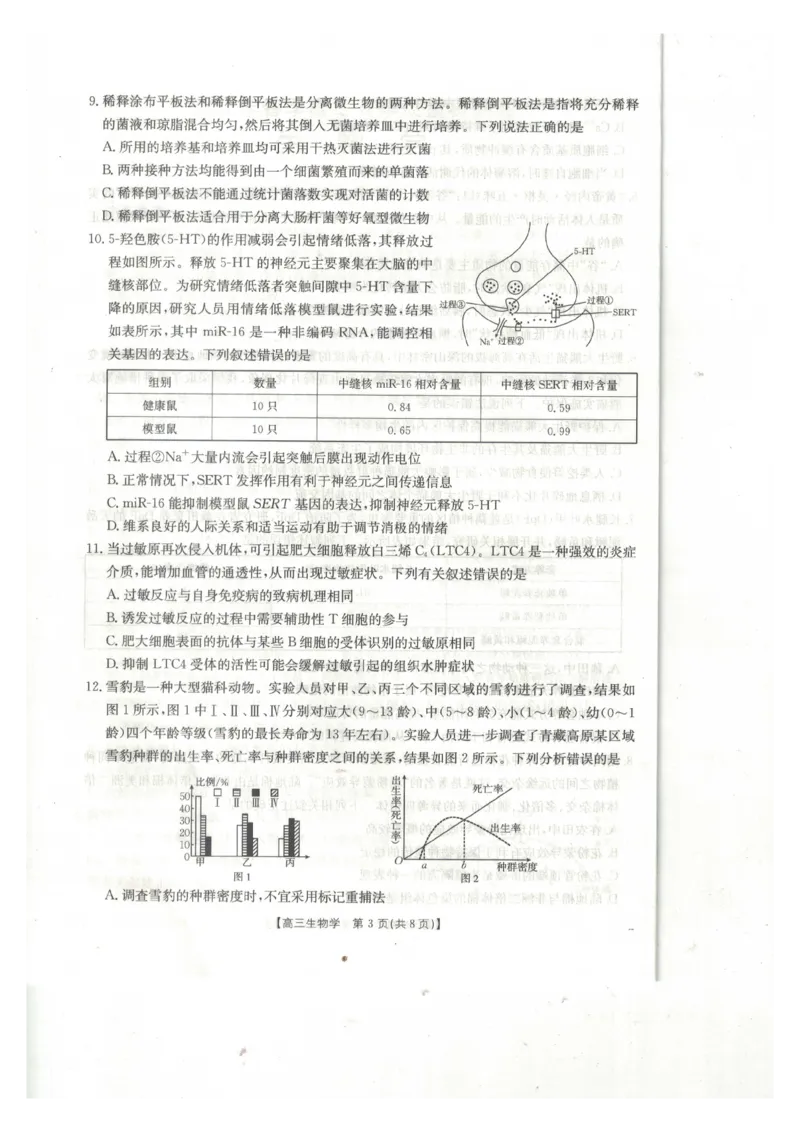 9. 稀释涂布平板法和稀释倒平板法是分离微生物的两种方法。稀释倒平板法是指将充分稀释
的菌液和琼脂混合均匀,然后将其倒入无菌培养皿中进行培养。下列说法正确的是
A. 所用的培养基和培养皿均可采用干热灭菌法进行灭菌
B. 两种接种方法均能得到由一个细菌繁殖而来的单菌落
C. 稀释倒平板法不能通过统计菌落数实现对活菌的计数
D. 稀释倒平板法适合用于分离大肠杆菌等好氧型微生物
10. 5-羟色胺(5-HT)的作用减弱会引起情绪低落,其释放过
程如图所示。释放 5-HT 的神经元主要聚集在大脑的中
缝核部位。为研究情绪低落者突触间隙中 5-HT 含量下
降的原因,研究人员用情绪低落模型鼠进行实验,结果
如表所示,其中 miR-16 是一种非编码 RNA,能调控相
关基因的表达。下列叙述错误的是
5-HT
过程③
过程①
SERT
Na⁺ 过程②
组别 数量 中缝核 miR-16 相对含量 中缝核 SERT 相对含量
健康鼠 10 只 0.84 0.59
模型鼠 10 只 0.65 0.99
A. 过程②Na⁺大量内流会引起突触后膜出现动作电位
B. 正常情况下,SERT 发挥作用有利于神经元之间传递信息
C. miR-16 能抑制模型鼠 SERT 基因的表达,抑制神经元释放 5-HT
D. 维系良好的人际关系和适当运动有助于调节消极的情绪
11. 当过敏原再次侵入机体,可引起肥大细胞释放白三烯 C₄(LTC4)。LTC4 是一种强效的炎症
介质,能增加血管的通透性,从而出现过敏症状。下列有关叙述错误的是
A. 过敏反应与自身免疫病的致病机理相同
B. 诱发过敏反应的过程中需要辅助性 T 细胞的参与
C. 肥大细胞表面的抗体与某些 B 细胞的受体识别的过敏原相同
D. 抑制 LTC4 受体的活性可能会缓解过敏引起的组织水肿症状
12. 雪豹是一种大型猫科动物。实验人员对甲、乙、丙三个不同区域的雪豹进行了调查,结果如
图 1 所示,图 1 中Ⅰ、Ⅱ、Ⅲ、Ⅳ分别对应大(9~13 龄)、中(5~8 龄)、小(1~4 龄)、幼(0~1
龄)四个年龄等级(雪豹的最长寿命为 13 年左右)。实验人员进一步调查了青藏高原某区域
雪豹种群的出生率、死亡率与种群密度之间的关系,结果如图 2 所示。下列分析错误的是
比例/%
50
40
30
20
10
0
Ⅰ Ⅱ Ⅲ Ⅳ
甲 乙 丙
图 1
出生率(死亡率)
死亡率
出生率
O a b 种群密度
图 2
A. 调查雪豹的种群密度时,不宜采用标记重捕法
【高三生物学 第 3 页(共 8 页)】